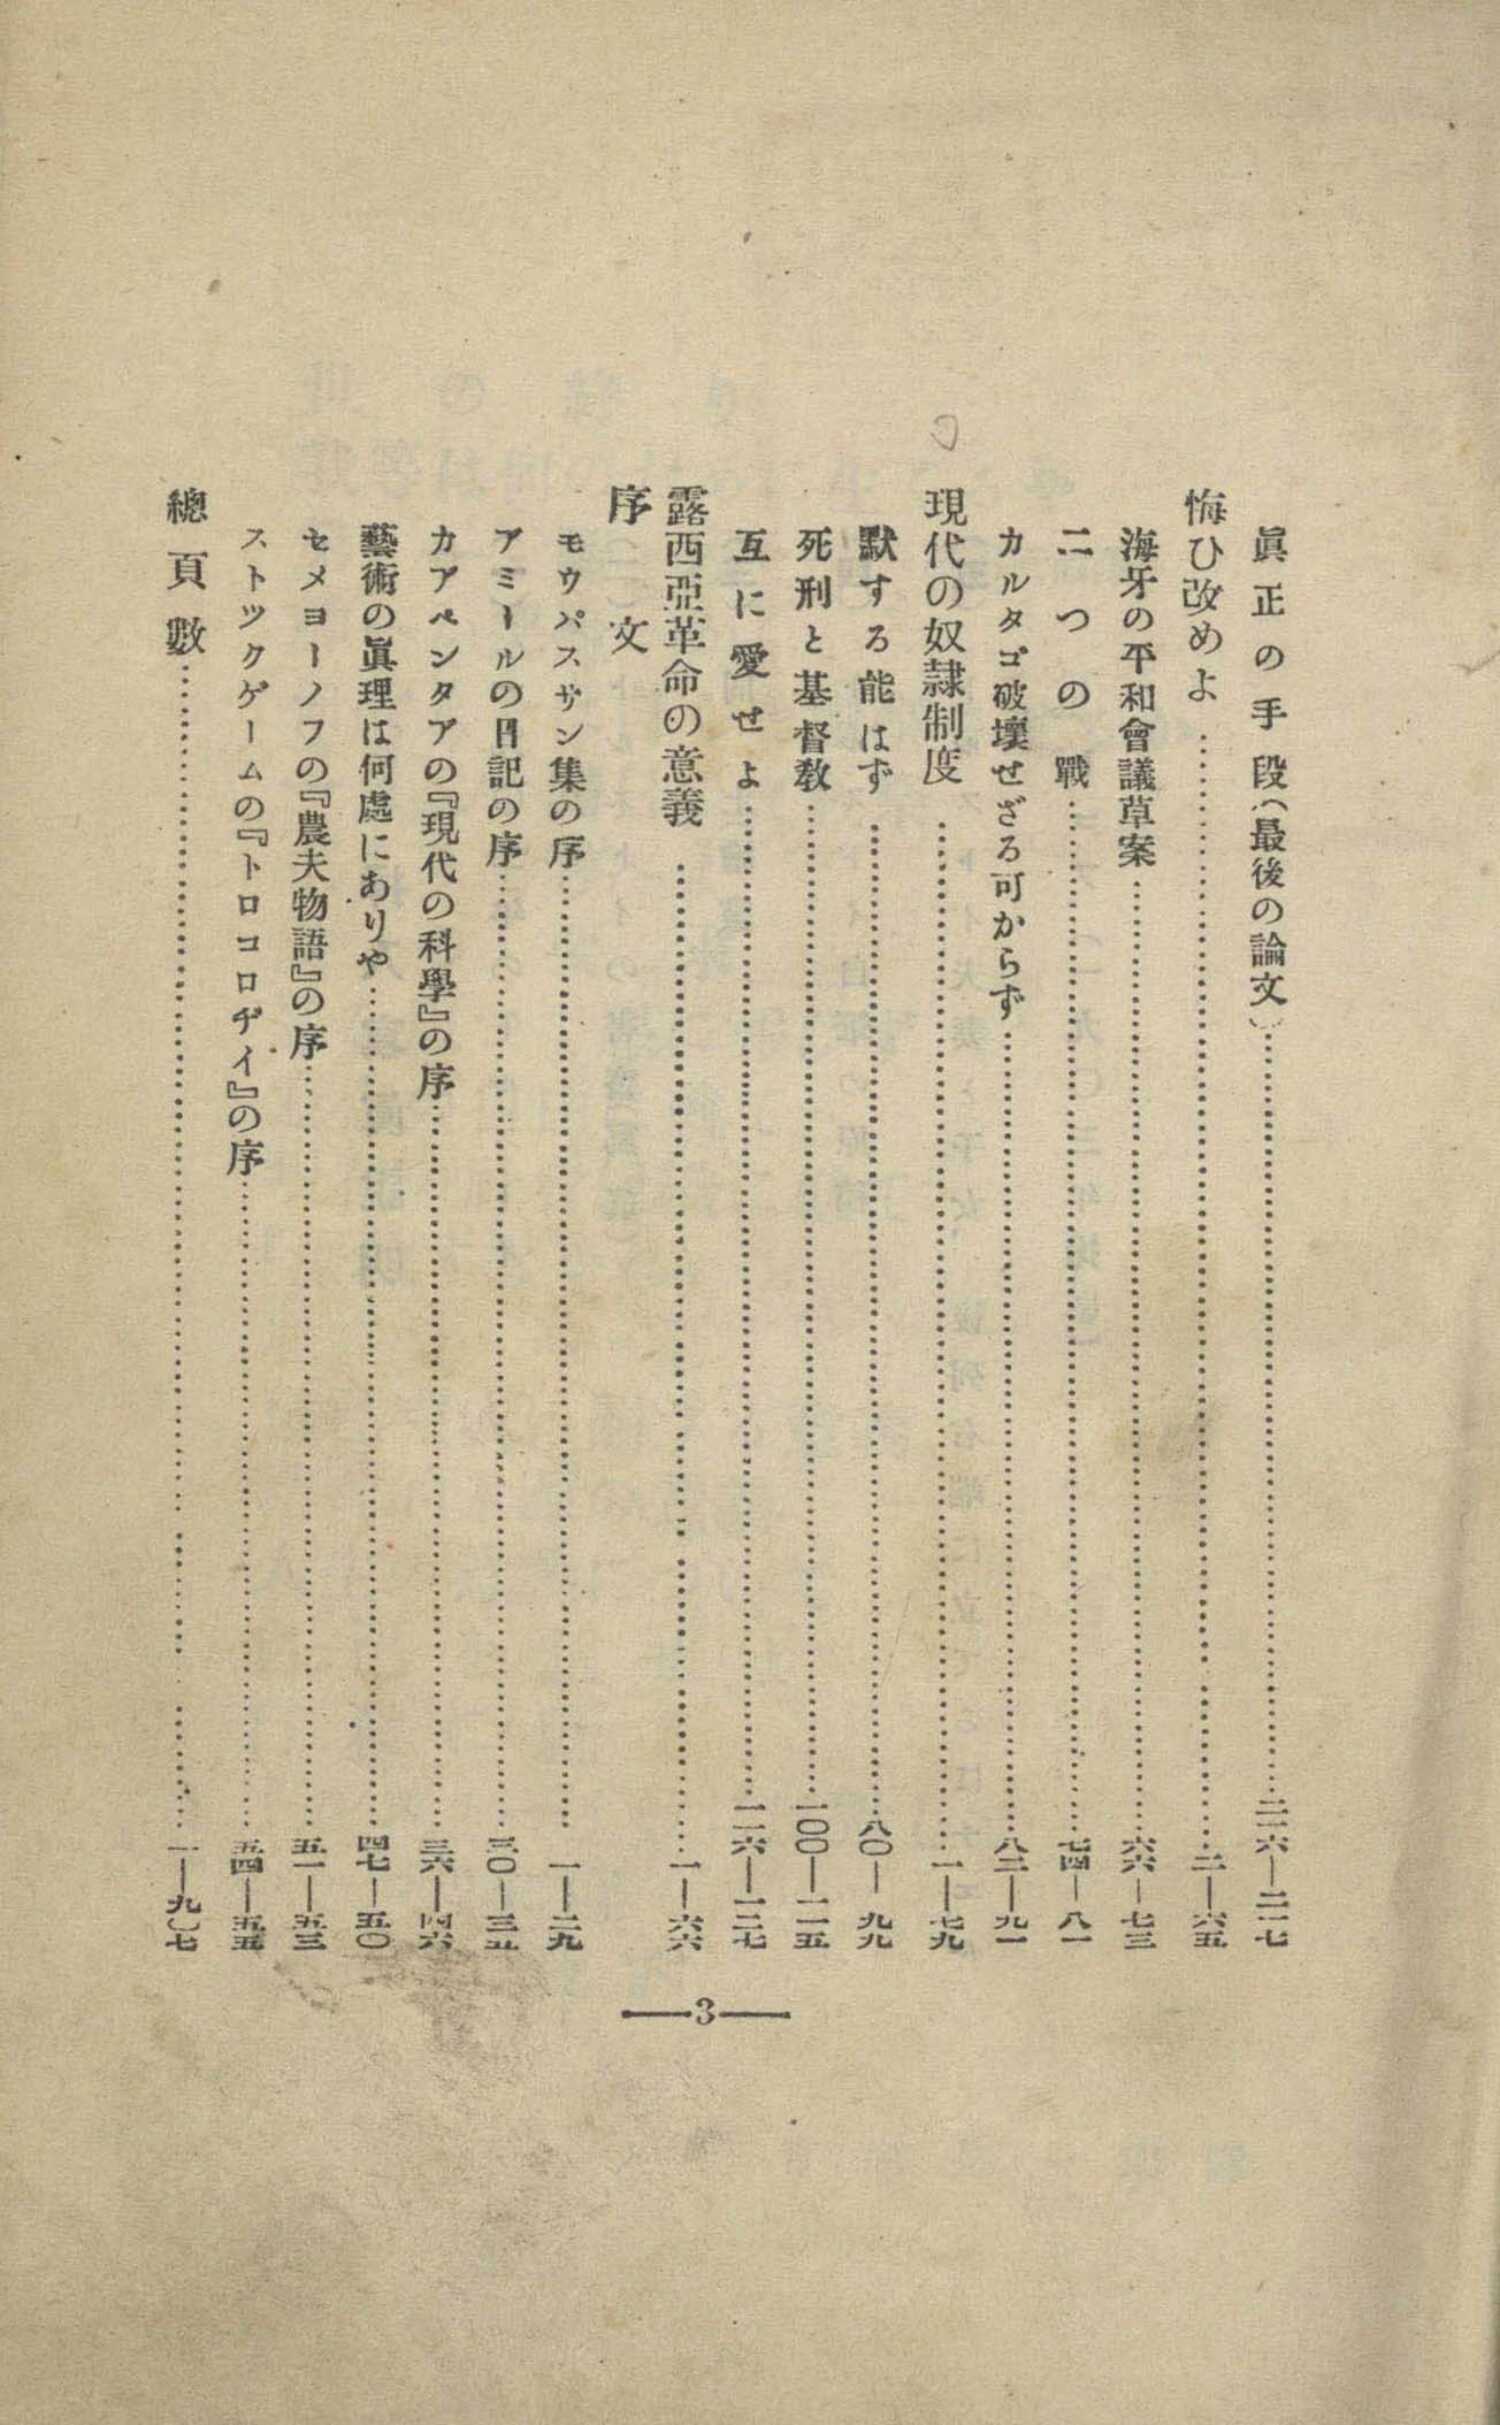 眞正の手段(最後の論文)……二一六―二一七
悔ひ改めよ……二―六五
海牙の平和會議草案……六六―七三
二つの戰……七四―八一
カルタゴ破壞せざる可からず……八二―九一
現代の奴隷制度……一―七九
默する能はず……八〇―九九
死刑と基督敎……一〇〇―一一五
互に愛せよ……一一六―一二七
露西亞革命の意義……一―六六
序文
モウパスサン集の序……一―二九
アミールの日記の序……三〇―三五
カアペンタアの『現代の科學』の序……三六―四六
藝術の眞理は何處にありや……四七―五〇
セメヨーノフの『農夫物語』の序……五一―五三
ストツクゲームの『トロコロヂイ』の序……五四―五五
總頁數……一―九〇七
―3―